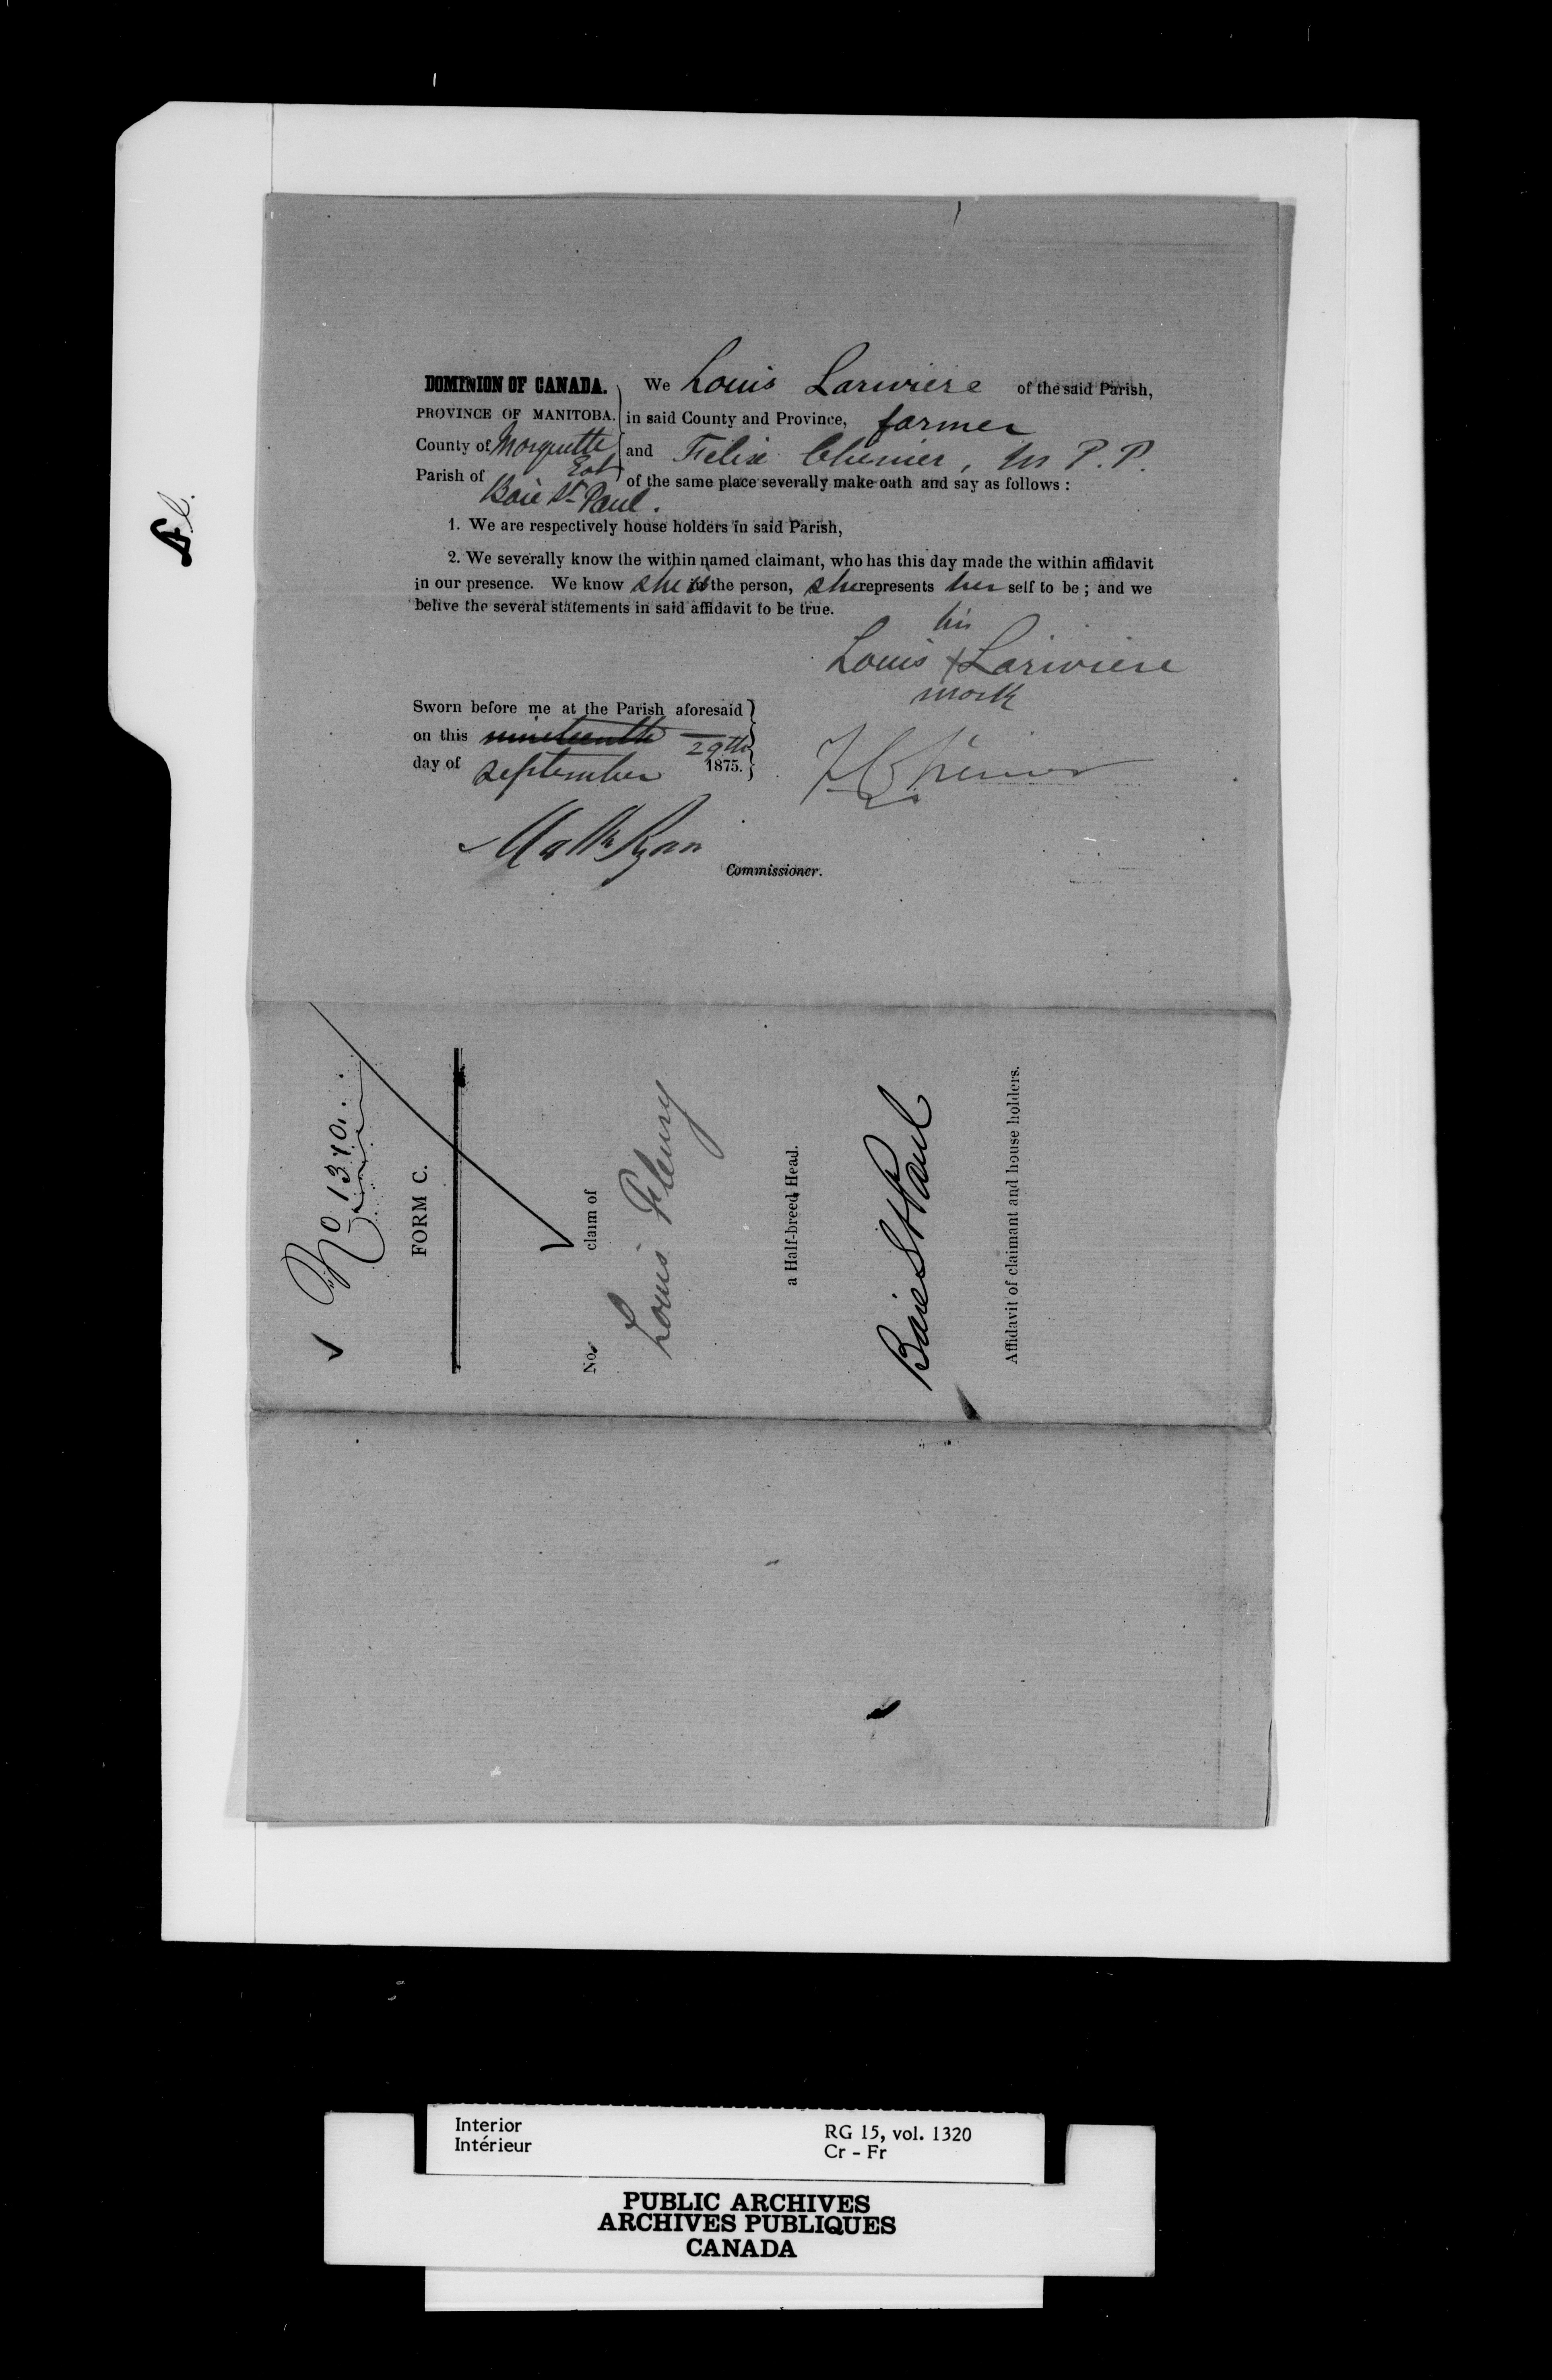 DOMINION OF CANADA.
PROVINCE OF MANITOBA.
County of Marquette
East
Parish of
Baie St Paul.
We Louis Lariviere of the said Parish,
in said County and Province, farmer
and Felix Chenier, M P. P.
of the same place severally make oath and say as follows :
1. We are respectively house holders in said Parish,
2. We severally know the within named claimant, who has this day made the within affidavit
in our presence. We know she is the person, she represents her self to be ; and we
belive the several statements in said affidavit to be true.
his
Louis X Lariviere
mark
Sworn before me at the Parish aforesaid
on this nineteenth 29th
day of september 1875.
F Chenier
Matt Ryan
Commissioner.
No
FORM C.
No. claim of
Louis Fleury
a Half-breed Head.
Baie St Paul
Affidavit of claimant and house holders.
Interior
Intérieur
RG 15, vol. 1320
Cr - Fr
PUBLIC ARCHIVES
ARCHIVES PUBLIQUES
CANADA